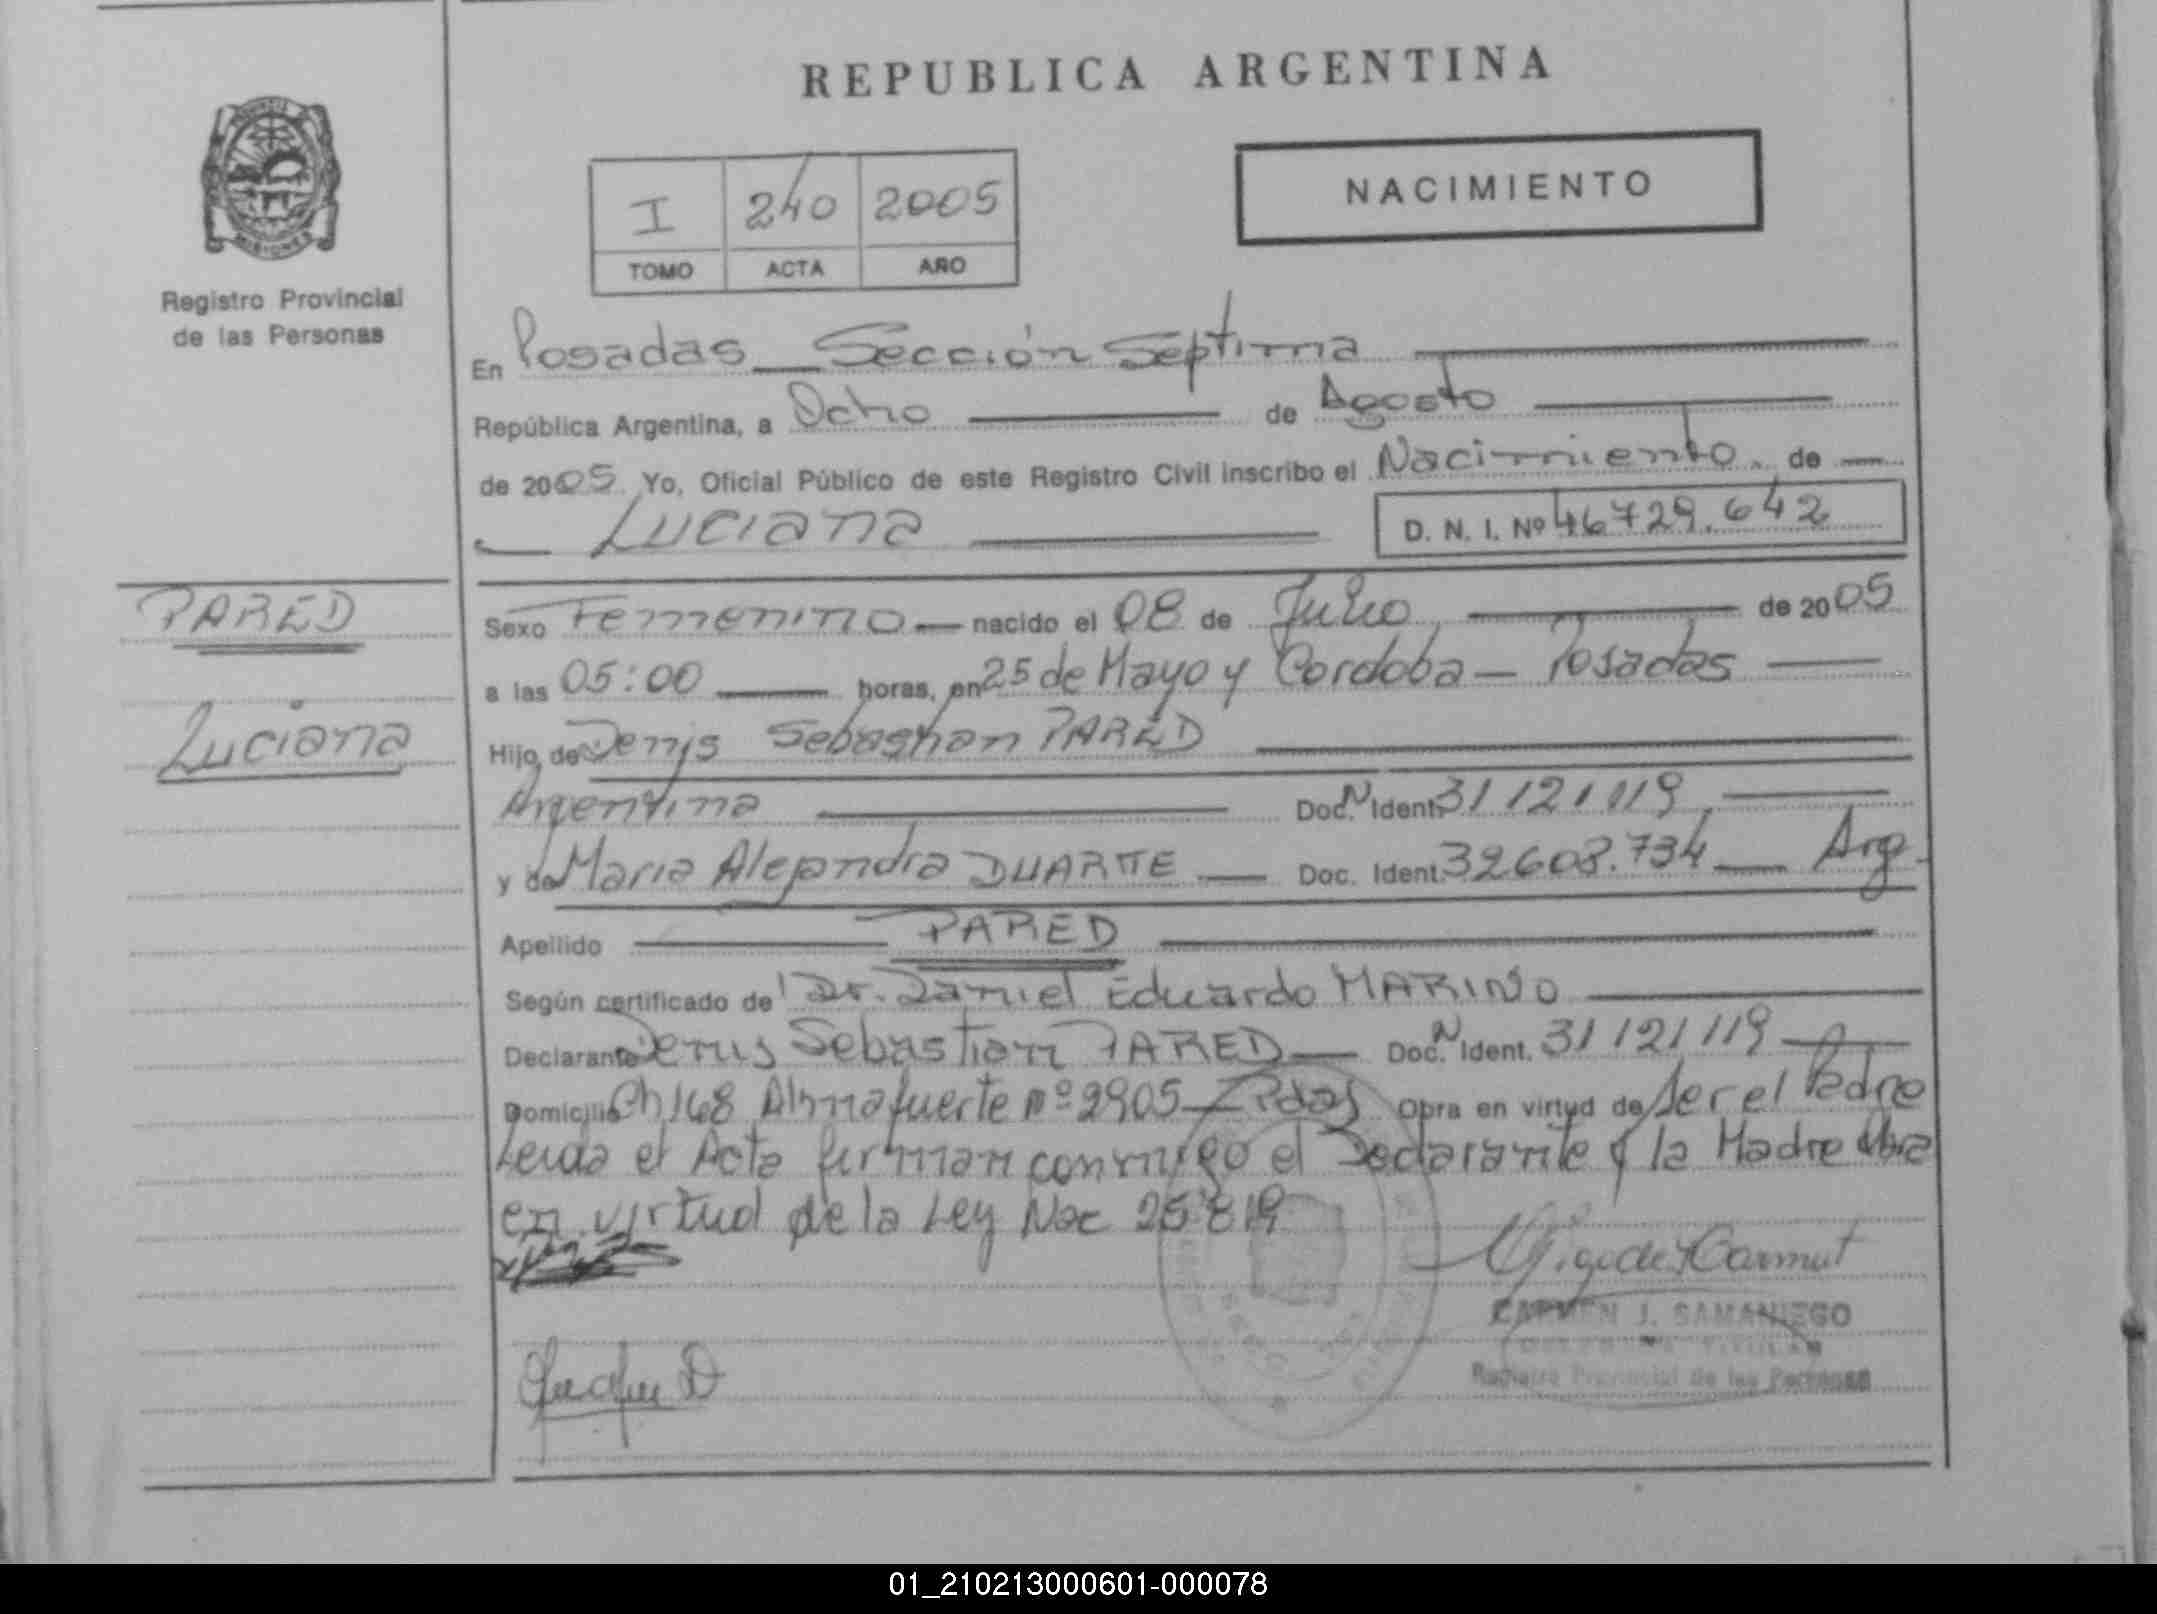 REPUBLICA ARGENTINA
NACIMIENTO
I 240 2005
TOMO ACTA AÑO
MISIONES
Registro Provincial
de las Personas
En Posadas Sección Septima
República Argentina, a Ocho de Agosto
de 2005 Yo, Oficial Público de este Registro Civil inscribo el Nacimiento. de
Luciana
D. N. I. Nº 46729.642
PARED
Luciana
Sexo Femenino nacido el 08 de Julio de 2005
a las 05:00 horas, en 25 de Mayo y Cordoba - Posadas
Hijo de Denis Sebastian PARED
Argentina Doc. N Ident. 31121119
y de Maria Alejandra DUARTE Doc. Ident. 32608.734 Arg.
Apellido PARED
Según certificado de Dr. Daniel Eduardo MARINO
Declarante Denis Sebastian PARED Doc. N Ident. 31121119
Domicilio Ch 168 Almafuerte nº 2905 - Pdas Obra en virtud de ser el Padre
Leida el Acta firman conmigo el Declarante y la Madre Obra
en virtud de la Ley Nac 25819
CARMEN J. SAMANIEGO
Registro Provincial de las Personas
01_210213000601-000078